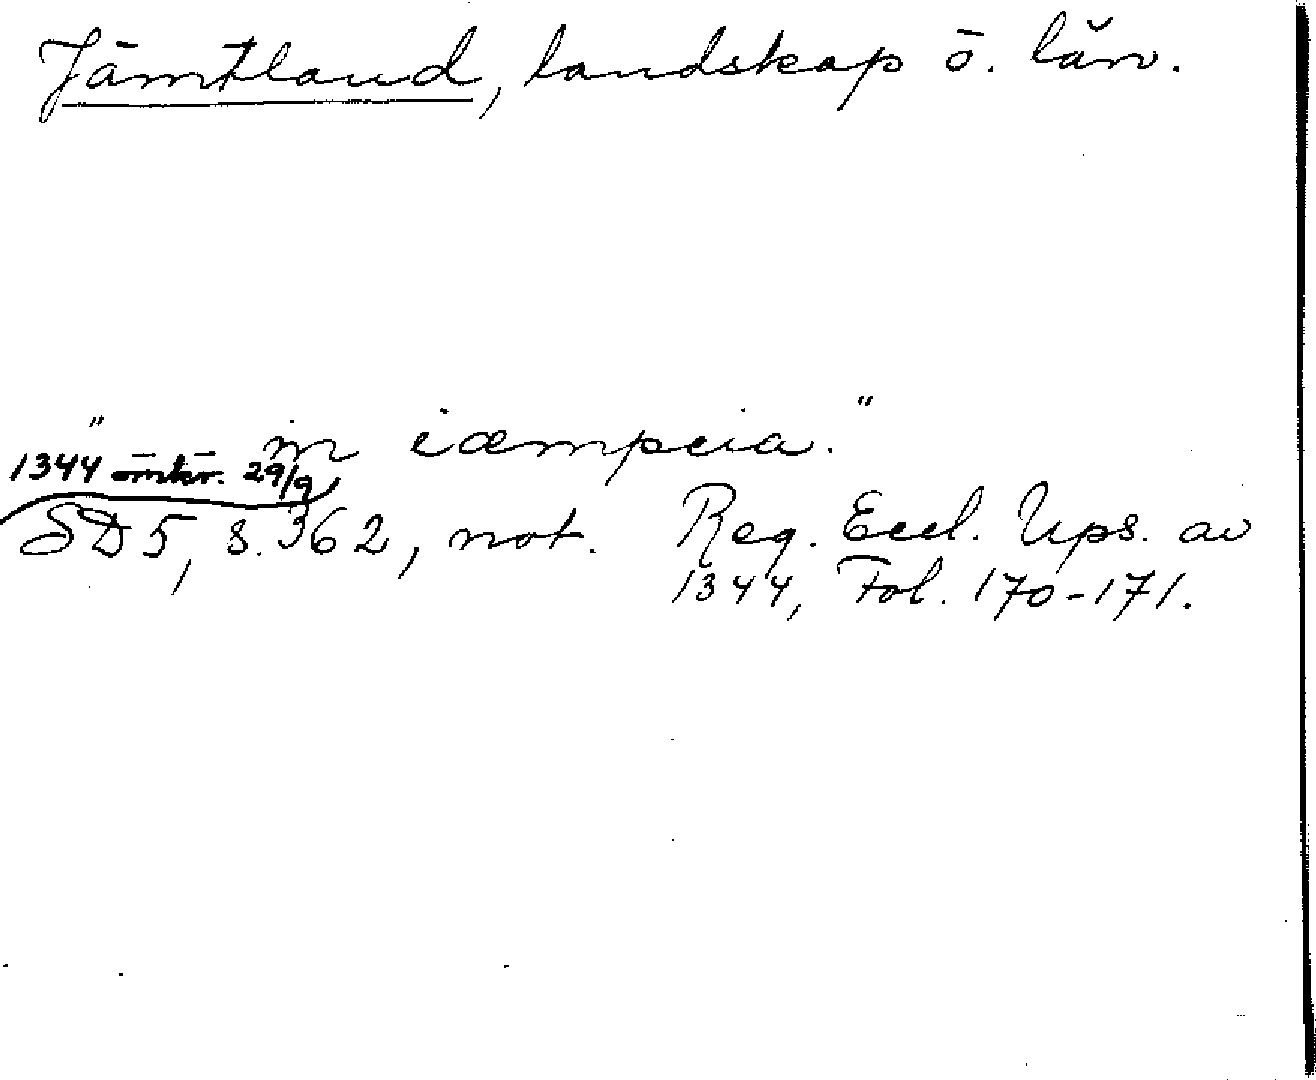 Jämtland, landskap o. län.
" in iæmpcia."
1344 omkr. 29/9
SD 5, s. 362, not. Reg. Eccl. Ups. av
1344, Fol. 170-171.